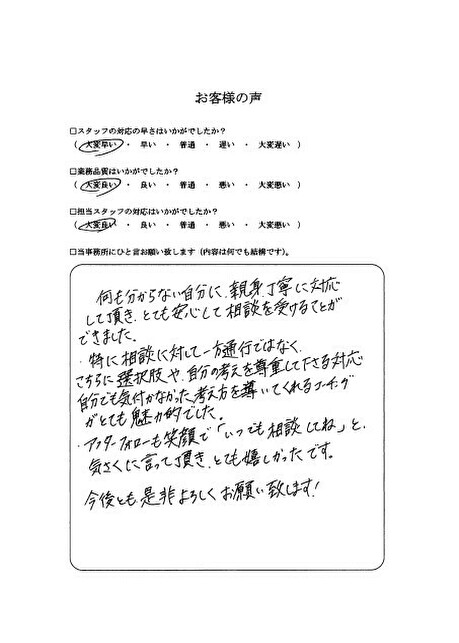 お客様の声
□スタッフの対応の早さはいかがでしたか？
（ 大変早い ・ 早い ・ 普通 ・ 遅い ・ 大変遅い ）
□業務品質はいかがでしたか？
（ 大変良い ・ 良い ・ 普通 ・ 悪い ・ 大変悪い ）
□担当スタッフの対応はいかがでしたか？
（ 大変良い ・ 良い ・ 普通 ・ 悪い ・ 大変悪い ）
□当事務所にひと言お願い致します（内容は何でも結構です）。
何も分からない自分に、親身、丁寧に対応
して頂き、とても安心して相談を受けることが
できました。
・特に相談に対して一方通行ではなく、
こちらに選択肢や、自分の考えを尊重して下さる対応
自分でも気付かなかった考え方を導いてくれるコーチング
がとても魅力的でした。
・アフターフォローも笑顔で「いつでも相談してね」と、
気さくに言って頂き、とても嬉しかったです。
今後とも是非よろしくお願い致します！